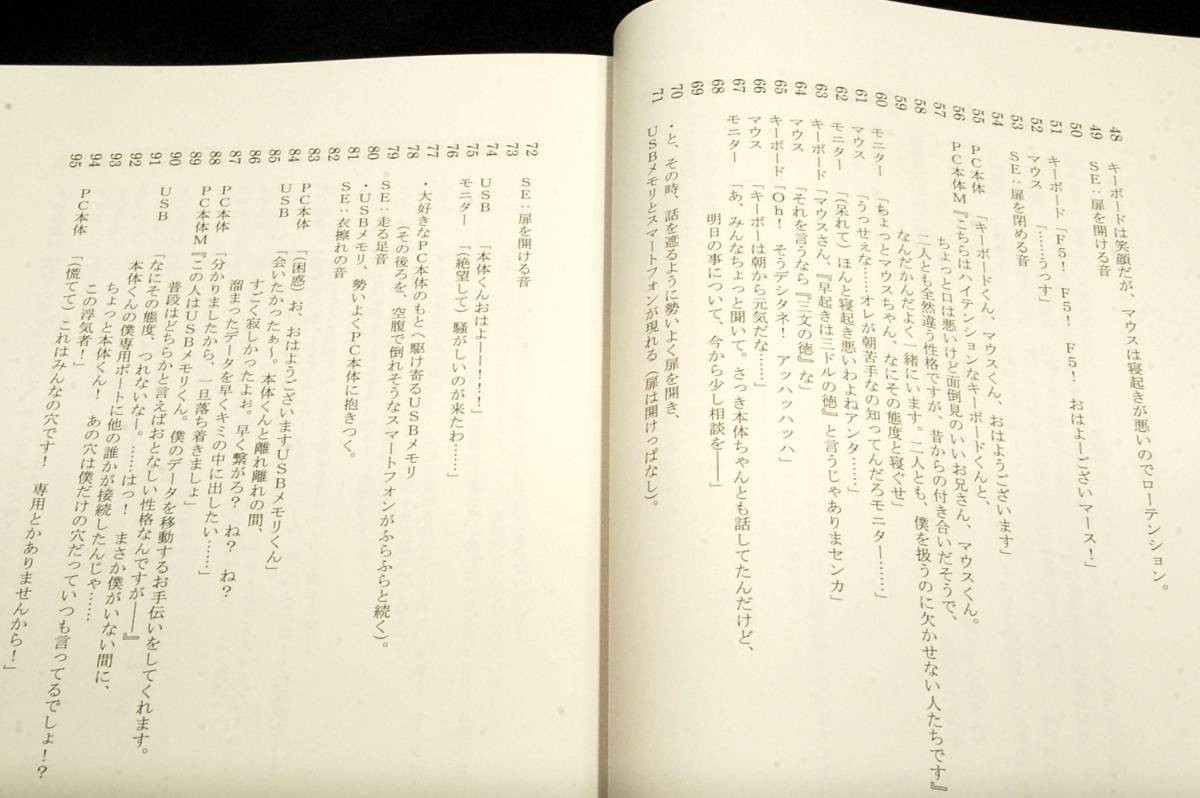 48 キーボードは笑顔だが、マウスは寝起きが悪いのでローテンション。
49 SE:扉を開ける音
50
51 キーボード「F5! F5! F5! おはよーございマース!」
52 マウス 「……うっす」
53 SE:扉を閉める音
54
55 PC本体 「キーボードくん、マウスくん、おはようございます」
56 PC本体M『こちらはハイテンションなキーボードくんと、
57 ちょっと口は悪いけど面倒見のいいお兄さん、マウスくん。
58 二人とも全然違う性格ですが、昔からの付き合いだそうで、
59 なんだかんだよく一緒にいます。二人とも、僕を扱うのに欠かせない人たちです』
60 モニター 「ちょっとマウスちゃん、なにその態度と寝ぐせ」
61 マウス 「うっせぇな……オレが朝苦手なの知ってんだろモニター……」
62 モニター 「(呆れて)ほんと寝起き悪いわよねアンタ……」
63 キーボード「マウスさん、『早起きは三ドルの徳』と言うじゃありまセンカ」
64 マウス 「それを言うなら『三文の徳』な」
65 キーボード「Oh! そうデシタネ! アッハッハッハ」
66 マウス 「キーボーは朝から元気だな……」
67 モニター 「あ、みんなちょっと聞いて。さっき本体ちゃんとも話してたんだけど、
68 明日の事について、今から少し相談を――」
69
70 ・と、その時、話を遮るように勢いよく扉を開き、
71 USBメモリとスマートフォンが現れる(扉は開けっぱなし)。
72 SE:扉を開ける音
73
74 USB 「本体くんおはよーー!!!」
75 モニター 「(絶望して)騒がしいのが来たわ……」
76
77 ・大好きなPC本体のもとへ駆け寄るUSBメモリ
78 (その後ろを、空腹で倒れそうなスマートフォンがふらふらと続く)。
79 SE:走る足音
80 ・USBメモリ、勢いよくPC本体に抱きつく。
81 SE:衣擦れの音
82
83 PC本体 「(困惑)お、おはようございますUSBメモリくん」
84 USB 「会いたかったぁ~。本体くんと離れ離れの間、
85 すごく寂しかったよぉ。早く繋がろ? ね? ね?
86 溜まったデータを早くキミの中に出したい……」
87 PC本体 「分かりましたから、一旦落ち着きましょ」
88 PC本体M『この人はUSBメモリくん。僕のデータを移動するお手伝いをしてくれます。
89 普段はどちらかと言えばおとなしい性格なんですが――』
90 USB 「なにその態度、つれないなー。……はっ! まさか僕がいない間に、
91 本体くんの僕専用ポートに他の誰かが接続したんじゃ……
92 ちょっと本体くん! あの穴は僕だけの穴だっていつも言ってるでしょ!?
93 この浮気者!」
94 PC本体 「(慌てて)これはみんなの穴です! 専用とかありませんから!」
95